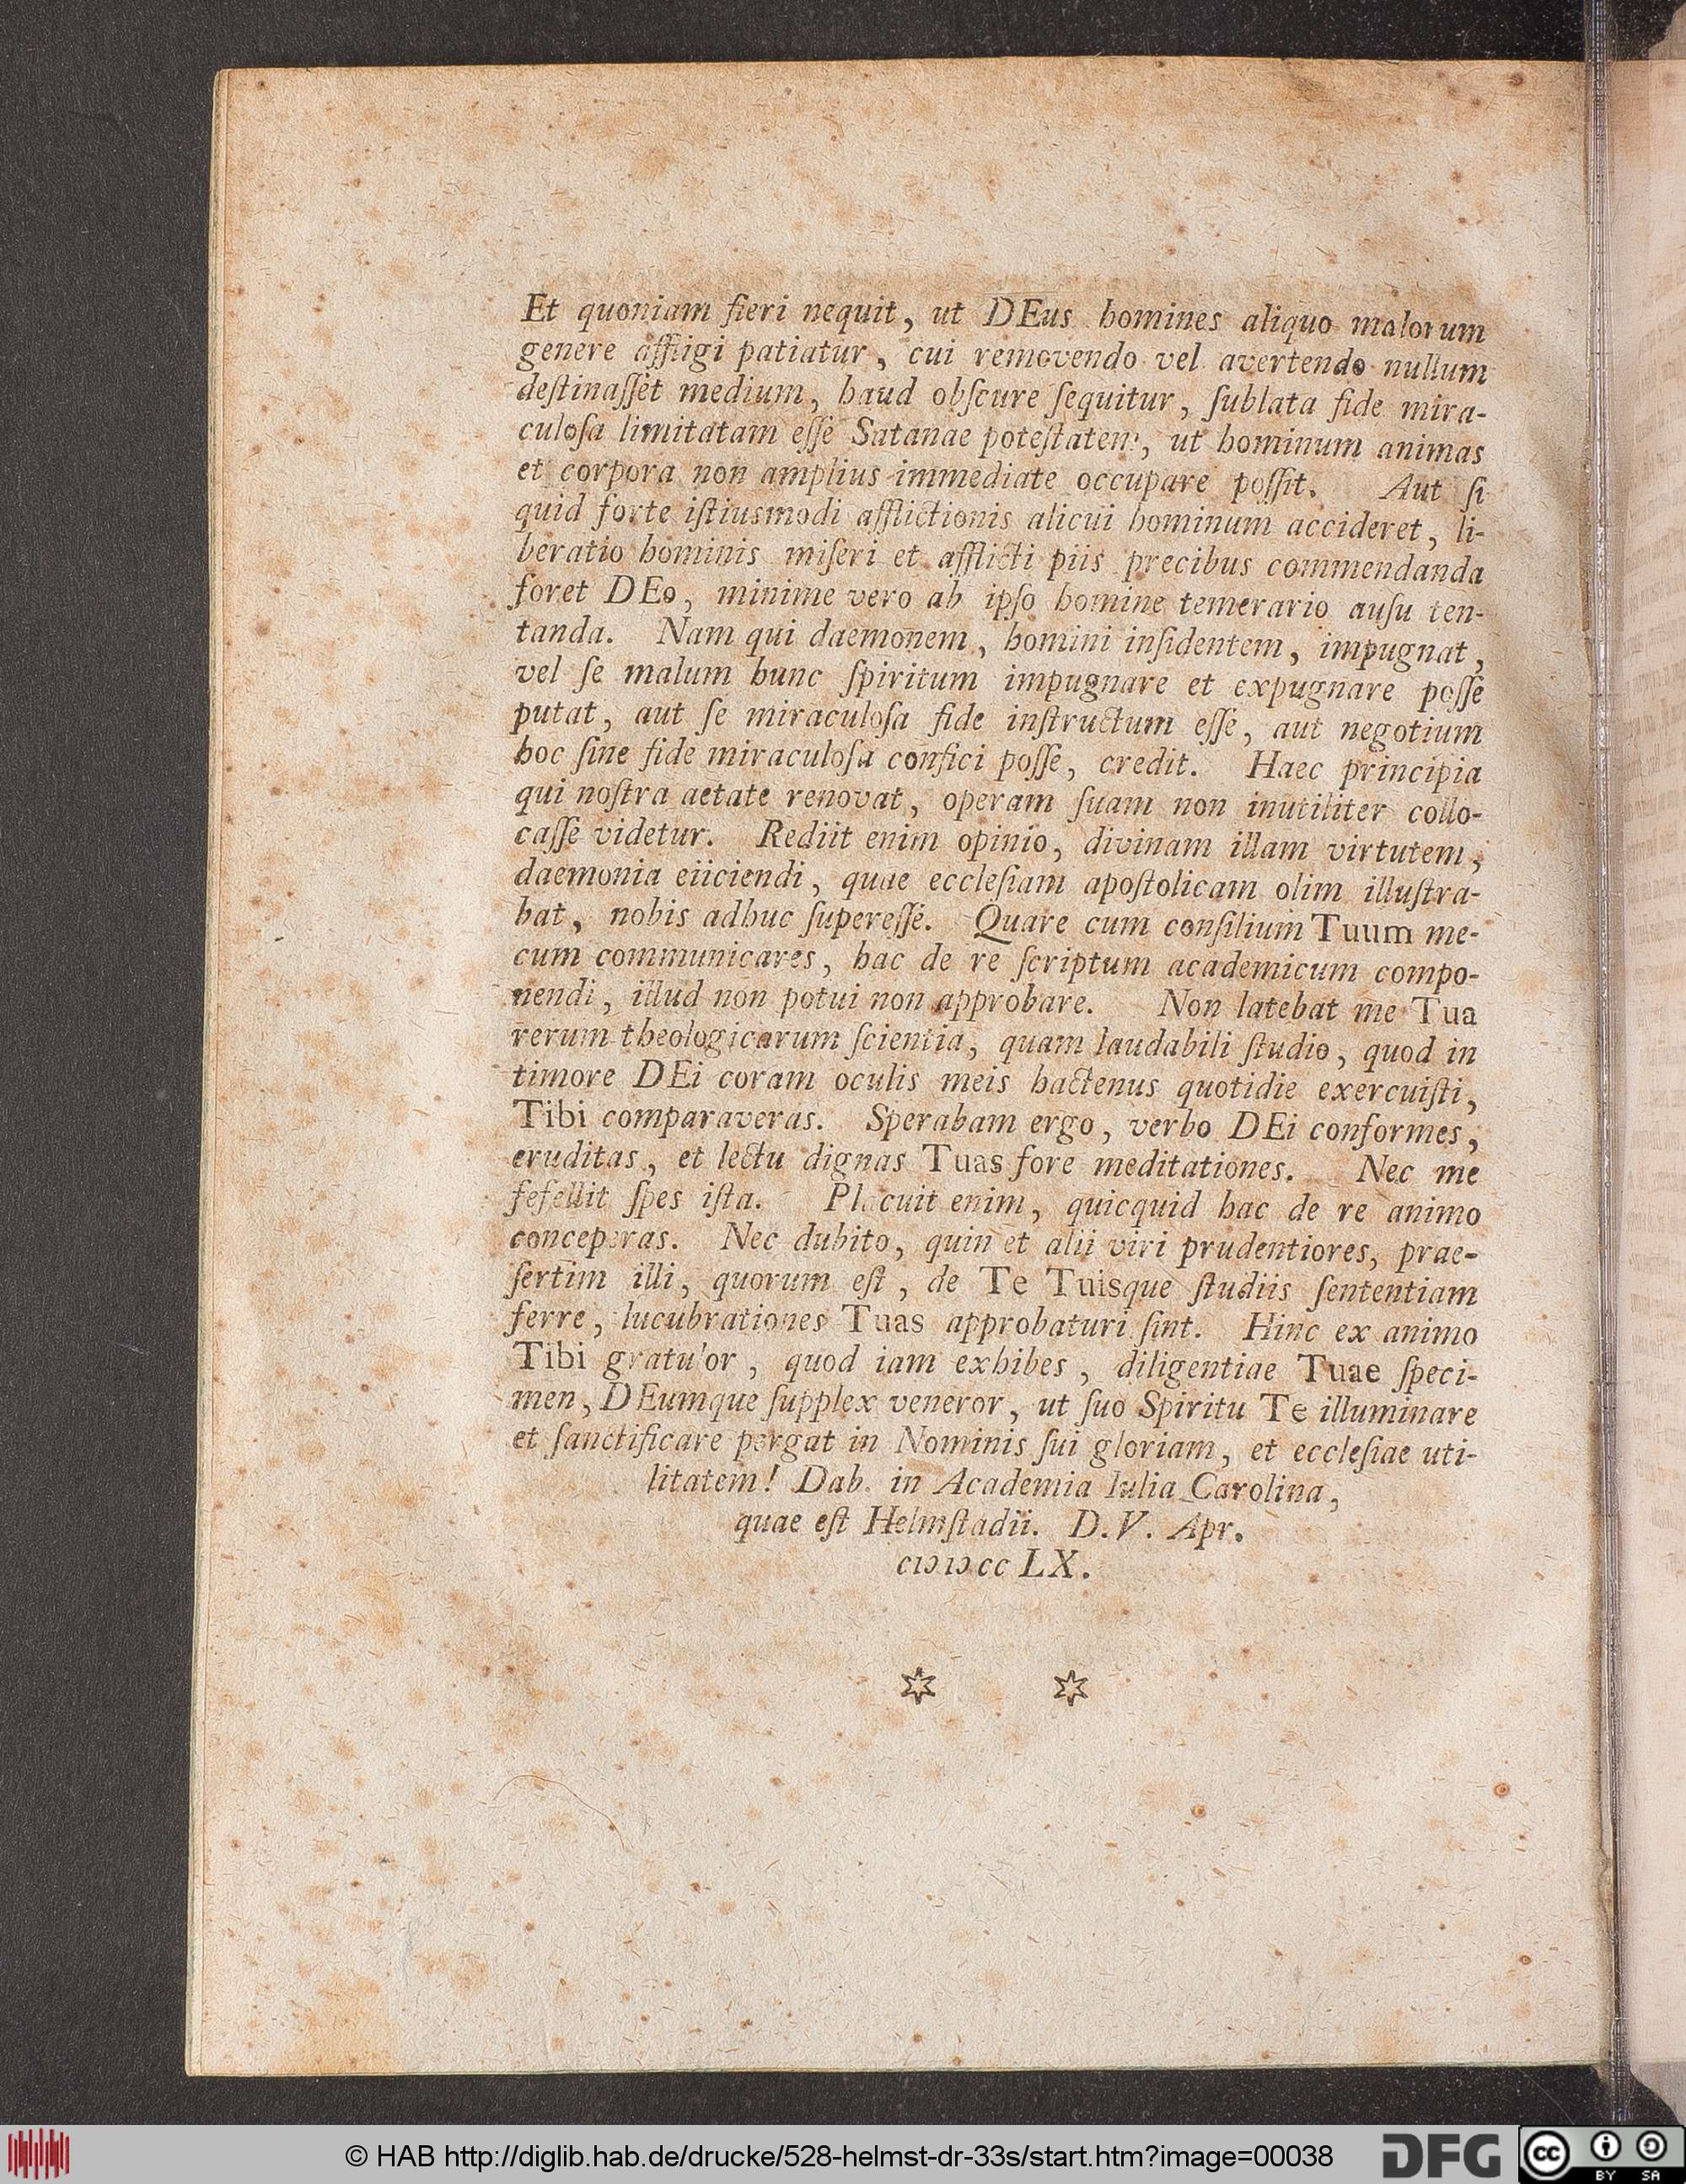 Et quoniam fieri nequit, ut DEus homines aliquo malorum
genere affligi patiatur, cui removendo vel avertendo nullum
deſtinaſſet medium, haud obſcure ſequitur, ſublata fide mira-
culoſa limitatam eſſe Satanae poteſtatem, ut hominum animas
et corpora non amplius immediate occupare poſſit. Aut ſi
quid forte iſtiusmodi afflictionis alicui hominum accideret, li-
beratio hominis miſeri et afflicti piis precibus commendanda
foret DEo, minime vero ab ipſo homine temerario auſu ten-
tanda. Nam qui daemonem, homini inſidentem, impugnat,
vel ſe malum hunc ſpiritum impugnare et expugnare poſſe
putat, aut ſe miraculoſa fide inſtructum eſſe, aut negotium
hoc ſine fide miraculoſa confici poſſe, credit. Haec principia
qui noſtra aetate renovat, operam ſuam non inutiliter collo-
caſſe videtur. Rediit enim opinio, divinam illam virtutem,
daemonia eiiciendi, quae eccleſiam apoſtolicam olim illuſtra-
bat, nobis adhuc ſupereſſe. Quare cum conſilium Tuum me-
cum communicares, hac de re ſcriptum academicum compo-
nendi, illud non potui non approbare. Non latebat me Tua
rerum theologicarum ſcientia, quam laudabili ſtudio, quod in
timore DEi coram oculis meis hactenus quotidie exercuiſti,
Tibi comparaveras. Sperabam ergo, verbo DEi conformes,
eruditas, et lectu dignas Tuas fore meditationes. Nec me
fefellit ſpes iſta. Placuit enim, quicquid hac de re animo
conceperas. Nec dubito, quin et alii viri prudentiores, prae-
ſertim illi, quorum eſt, de Te Tuisque ſtudiis ſententiam
ferre, lucubrationes Tuas approbaturi ſint. Hinc ex animo
Tibi gratulor, quod iam exhibes, diligentiae Tuae ſpeci-
men, DEumque ſupplex veneror, ut ſuo Spiritu Te illuminare
et ſanctificare pergat in Nominis ſui gloriam, et eccleſiae uti-
litatem! Dab. in Academia Iulia Carolina,
quae eſt Helmſtadii. D. V. Apr.
cIↄ Iↄ cc LX.
© HAB http://diglib.hab.de/drucke/528-helmst-dr-33s/start.htm?image=00038
DFG
cc BY SA